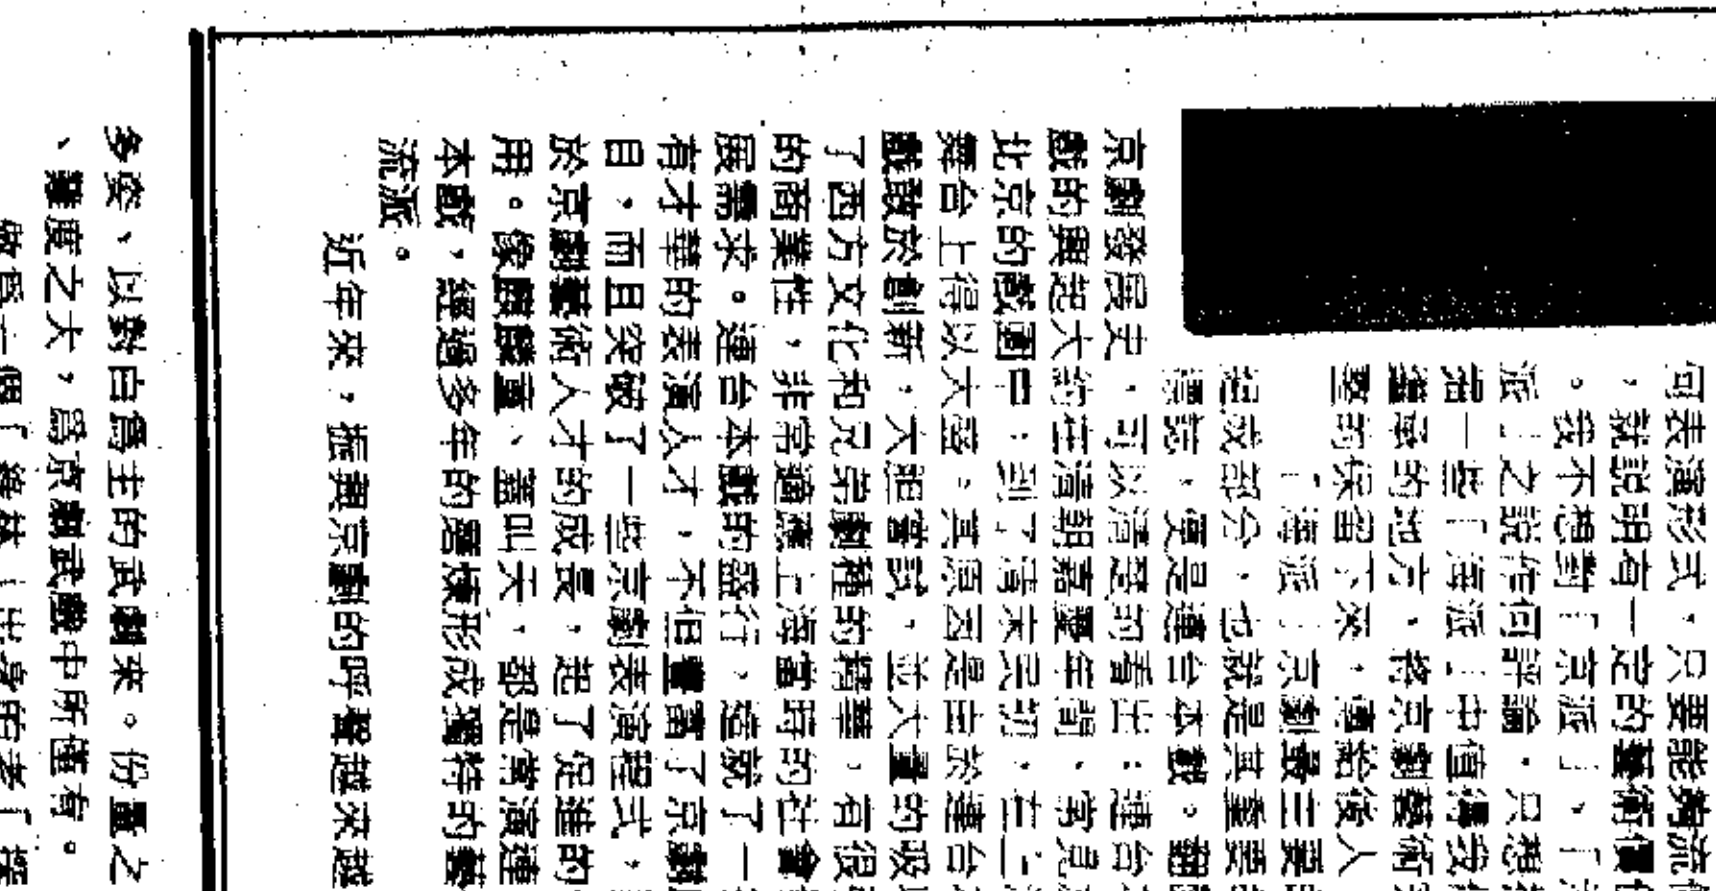 何表演形式，只要能夠流
，就說明有一定的藝術價
。我不想對「京派」、「
派」之說作何評論，只想
究一些「海派」中值得我
繼承的地方，將京劇藝術
整的保留下來，傳給後人
「海派」京劇最主要
組成部分，也就是其重要
標誌，便是連台本戲。翻
京劇發展史，可以清楚的看出：連台
戲的興起大約在清朝嘉慶年間，常見
北京的戲園中；到了清末民初，在上
舞台上得以大發。其原因是由於連台
戲敢於創新，大膽嘗試，並大量的吸
了西方文化和兄弟劇種的精華，有很
的商業性，非常適應上海當時的社會
展需求。連台本戲的盛行，造就了一
有才華的表演人才，不但豐富了京劇
目，而且突破了一些京劇表演程式，
於京劇藝術人才的成長，起了促進的
用。像麒麟童、蓋叫天，都是常演連
本戲，經過多年的磨煉形成獨特的藝
流派。
近年來，振興京劇的呼聲越來越
多姿、以對白為主的武劇來。份量之
、難度之大，為京劇武戲中所僅有。